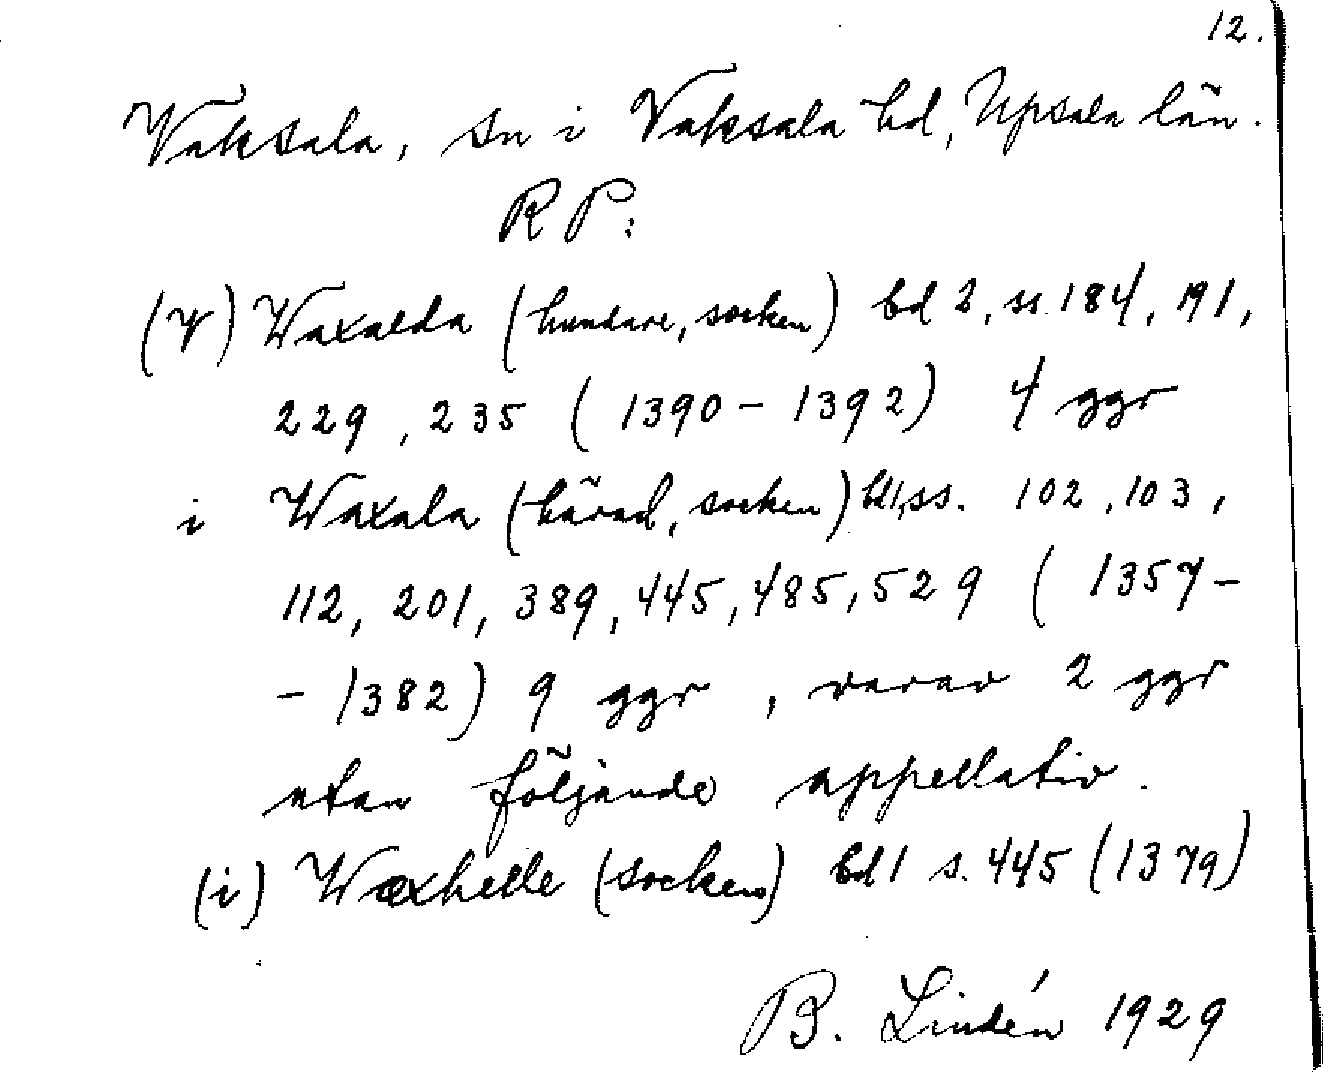 12.
Vaksala, sn i Vaksala hd, Upsala län.
RP:
(V) Waxalda (hundare, socken) bd 2, ss. 184, 191,
229, 235 (1390-1392) 4 ggr
i Waxala (härad, socken) bd 1, ss. 102, 103,
112, 201, 389, 445, 485, 529 (1357-
-1382) 9 ggr, varav 2 ggr
utan följande appellativ.
(i) Wæxhelle (socken) bd 1 s. 445 (1379)
B. Lindén 1929